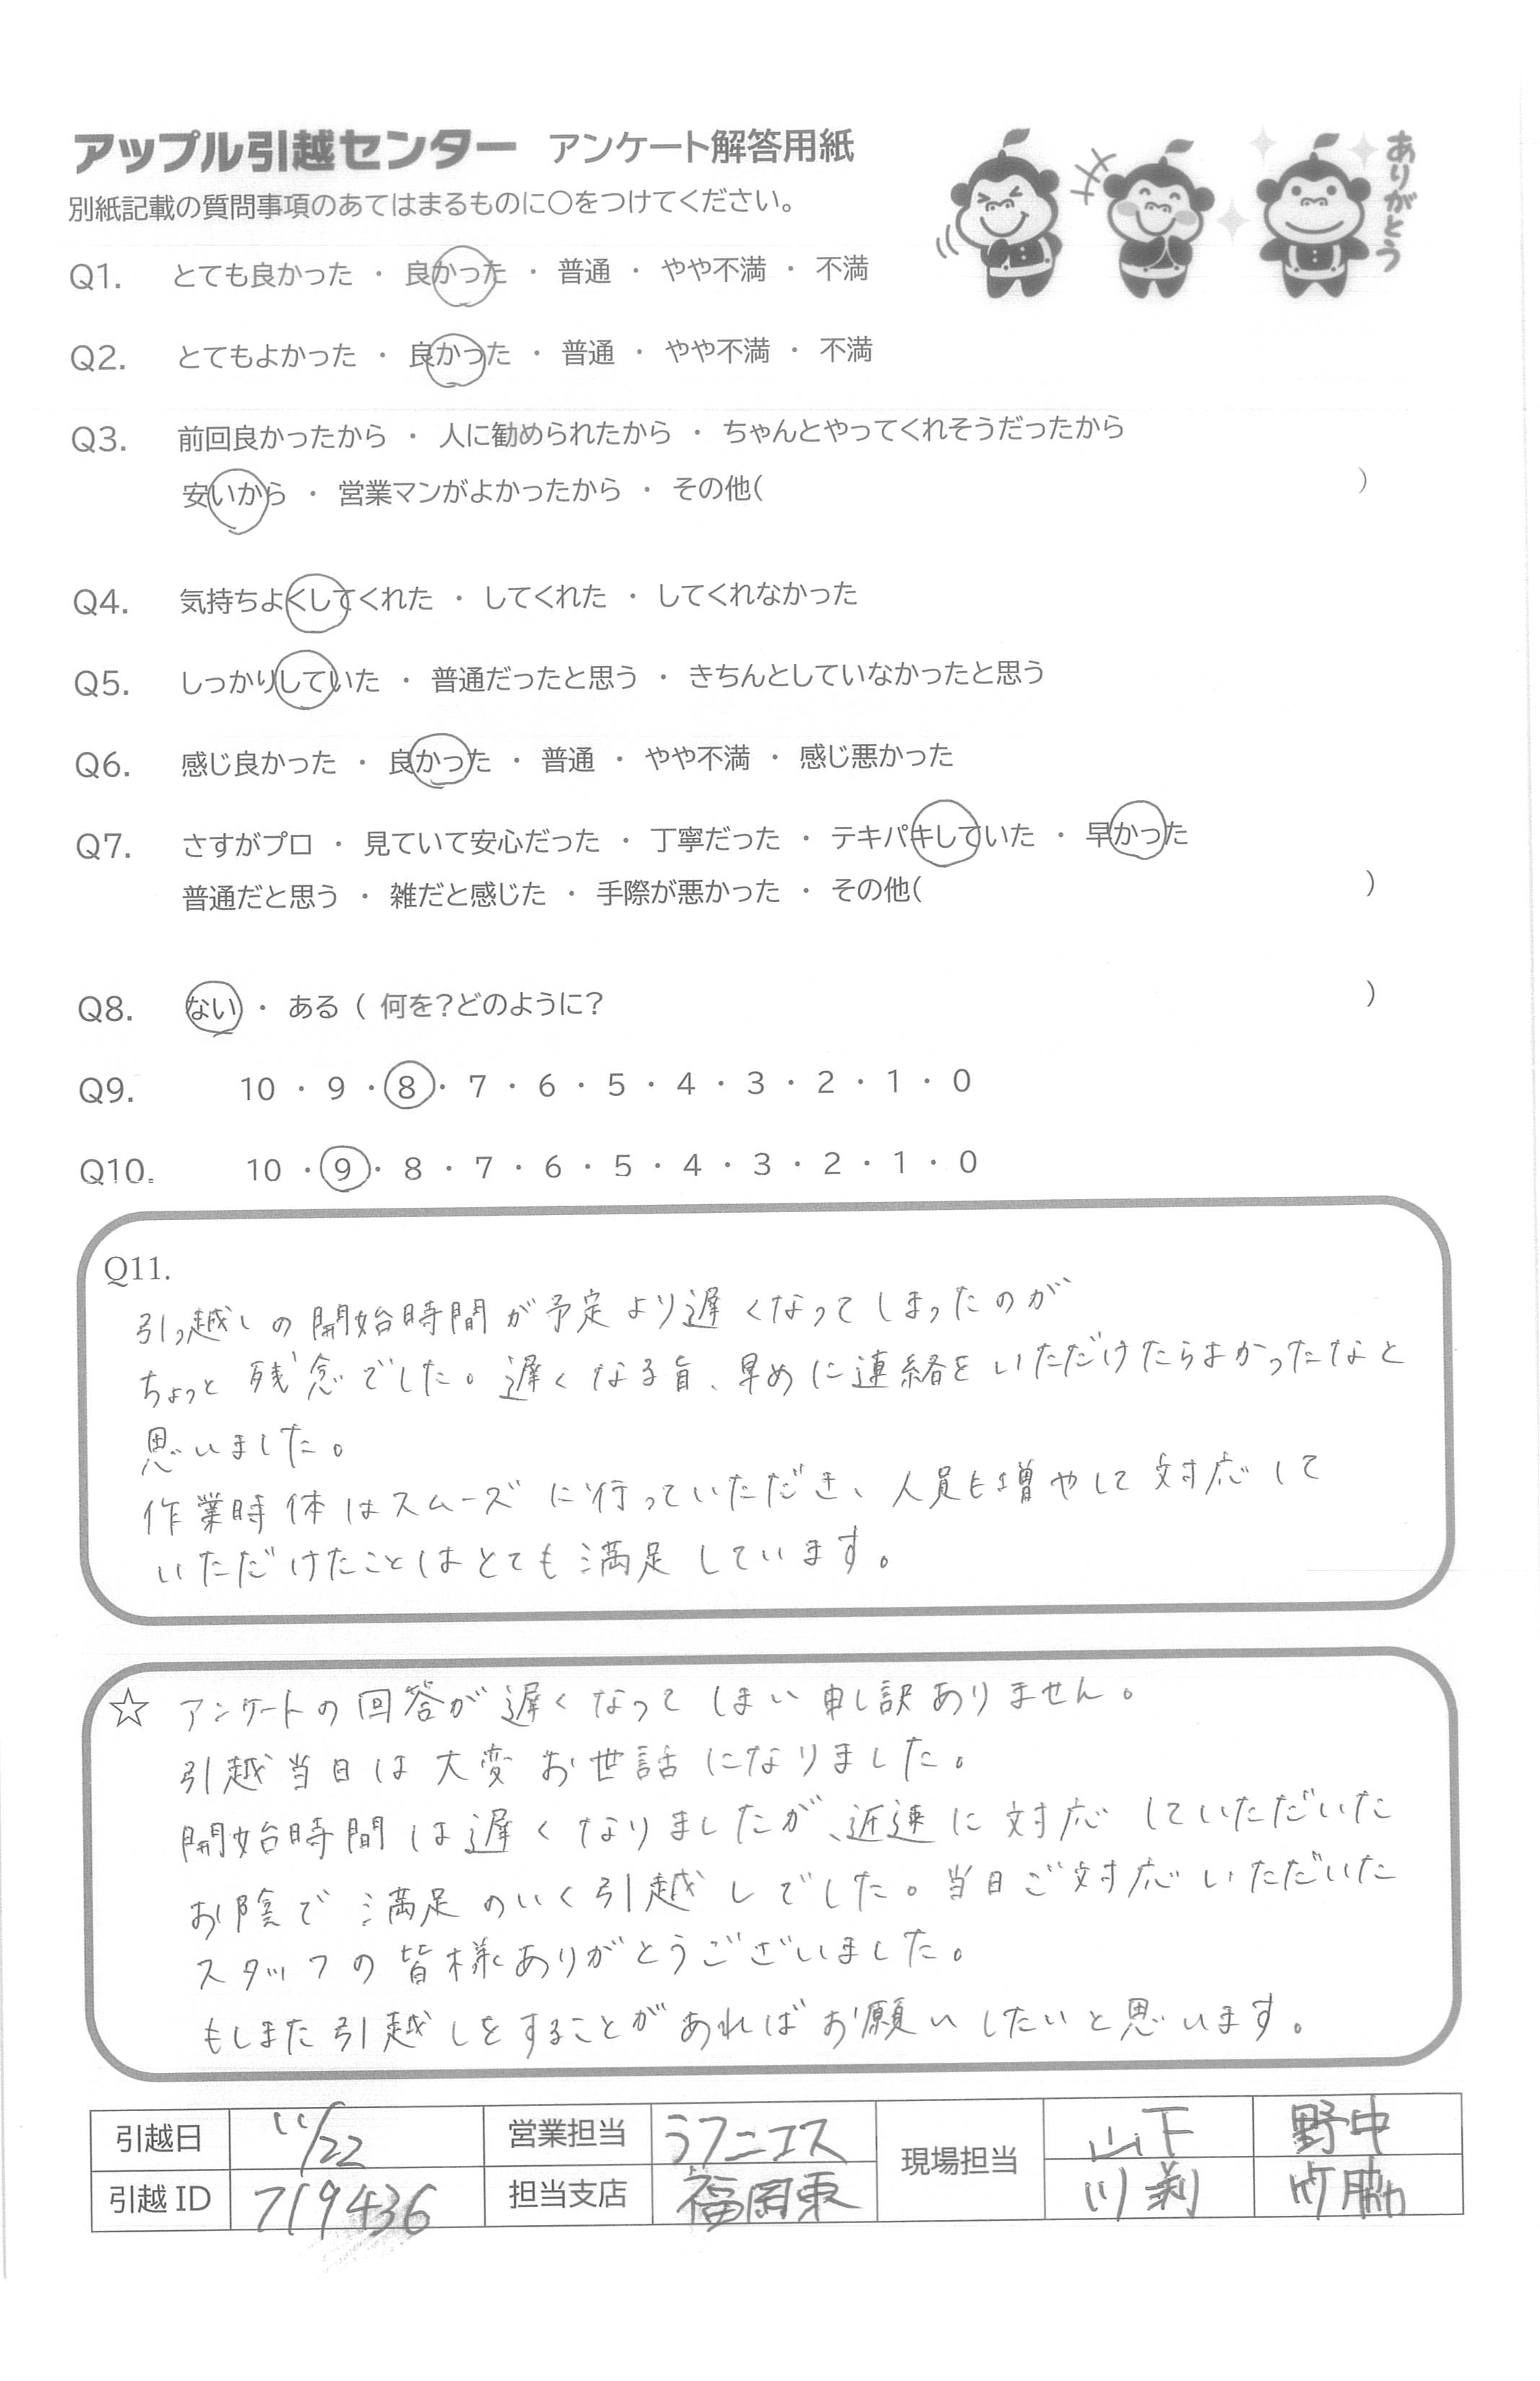 アップル引越センター アンケート解答用紙
ありがとう
別紙記載の質問事項のあてはまるものに〇をつけてください。
Q1. とても良かった ・ 良かった ・ 普通 ・ やや不満 ・ 不満
Q2. とてもよかった ・ 良かった ・ 普通 ・ やや不満 ・ 不満
Q3. 前回良かったから ・ 人に勧められたから ・ ちゃんとやってくれそうだったから
安いから ・ 営業マンがよかったから ・ その他( )
Q4. 気持ちよくしてくれた ・ してくれた ・ してくれなかった
Q5. しっかりしていた ・ 普通だったと思う ・ きちんとしていなかったと思う
Q6. 感じ良かった ・ 良かった ・ 普通 ・ やや不満 ・ 感じ悪かった
Q7. さすがプロ ・ 見ていて安心だった ・ 丁寧だった ・ テキパキしていた ・ 早かった
普通だと思う ・ 雑だと感じた ・ 手際が悪かった ・ その他( )
Q8. ない ・ ある ( 何を?どのように? )
Q9. 10 ・ 9 ・ 8 ・ 7 ・ 6 ・ 5 ・ 4 ・ 3 ・ 2 ・ 1 ・ 0
Q10. 10 ・ 9 ・ 8 ・ 7 ・ 6 ・ 5 ・ 4 ・ 3 ・ 2 ・ 1 ・ 0
Q11.
引っ越しの開始時間が予定より遅くなってしまったのが
ちょっと残念でした。遅くなる旨、早めに連絡をいただけたらよかったなと
思いました。
作業時体はスムーズに行っていただき、人員も増やして対応して
いただけたことはとても満足しています。
☆ アンケートの回答が遅くなってしまい申し訳ありません。
引越当日は大変お世話になりました。
開始時間は遅くなりましたが、迅速に対応していただいた
お陰で満足のいく引越しでした。当日ご対応いただいた
スタッフの皆様ありがとうございました。
もしまた引越しをすることがあればお願いしたいと思います。
引越日 11/22 営業担当 ラフニエス 現場担当 山下 野中
引越ID 719436 担当支店 福岡東 川渕 竹脇